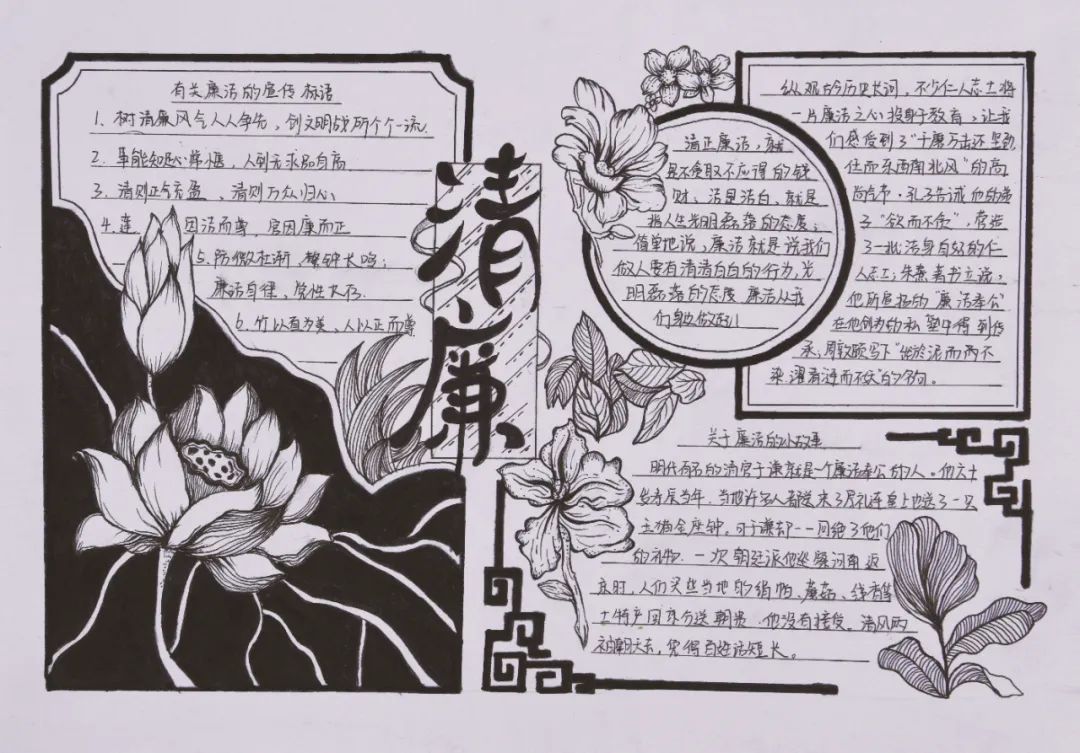 有关廉洁的宣传标语
1. 树清廉风气人人争先，创文明战所个个一流.
2. 事能知足心常惬，人到无求品自高
3. 清则正气充盈、清则万众归心
4. 莲因洁而尊，官因廉而正
5. 防微杜渐，警钟长鸣；
廉洁自律，党性长存.
6. 竹以直为美，人以正而尊
清廉
清正廉洁，就
是不受取不应得的钱
财、洁是洁白，就是
指人生光明磊落的态度；
简单地说，廉洁就是说我们
做人要有清清白白的行为，光
明磊落的态度 廉洁从我
们身边做起！
纵观古今历史长河，不少仁人志士将
一片廉洁之心投身于教育，让我
们感受到了“千磨万击还坚劲，
任而东西南北风”的高
尚合节·孔子告诫他的弟
子“欲而不贪”，营造
了一批洁身自好的仁
人志士；朱熹著书立说，
他所宣扬的“廉洁奉公”
在他创办的私塾中得到传
承；周敦颐写下“出淤泥而不
染 濯清涟而不妖”的名句。
关于廉洁的小故事
明代有名的清官于谦就是一个廉洁奉公的人。他六十
岁寿辰当年，当地许多人都送来了贺礼连皇上也送了一只
玉猫金座钟。可于谦却一一回绝了他们
的礼物. 一次朝廷派他巡察河南返
京时，人们买些当地的绢帕，蘑菇、线香等
土特产回京分送朝贵. 他没有接受。清风两
袖朝天去，免得百姓话短长。